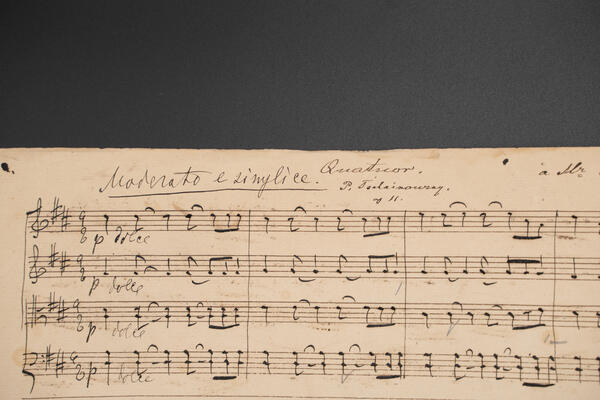 Moderato e simplice. Quatuor. à Mr
P. Tschaikowsky.
op 11.
9 8 p dolce
9 8 p dolce
9 8 p dolce
9 8 p dolce